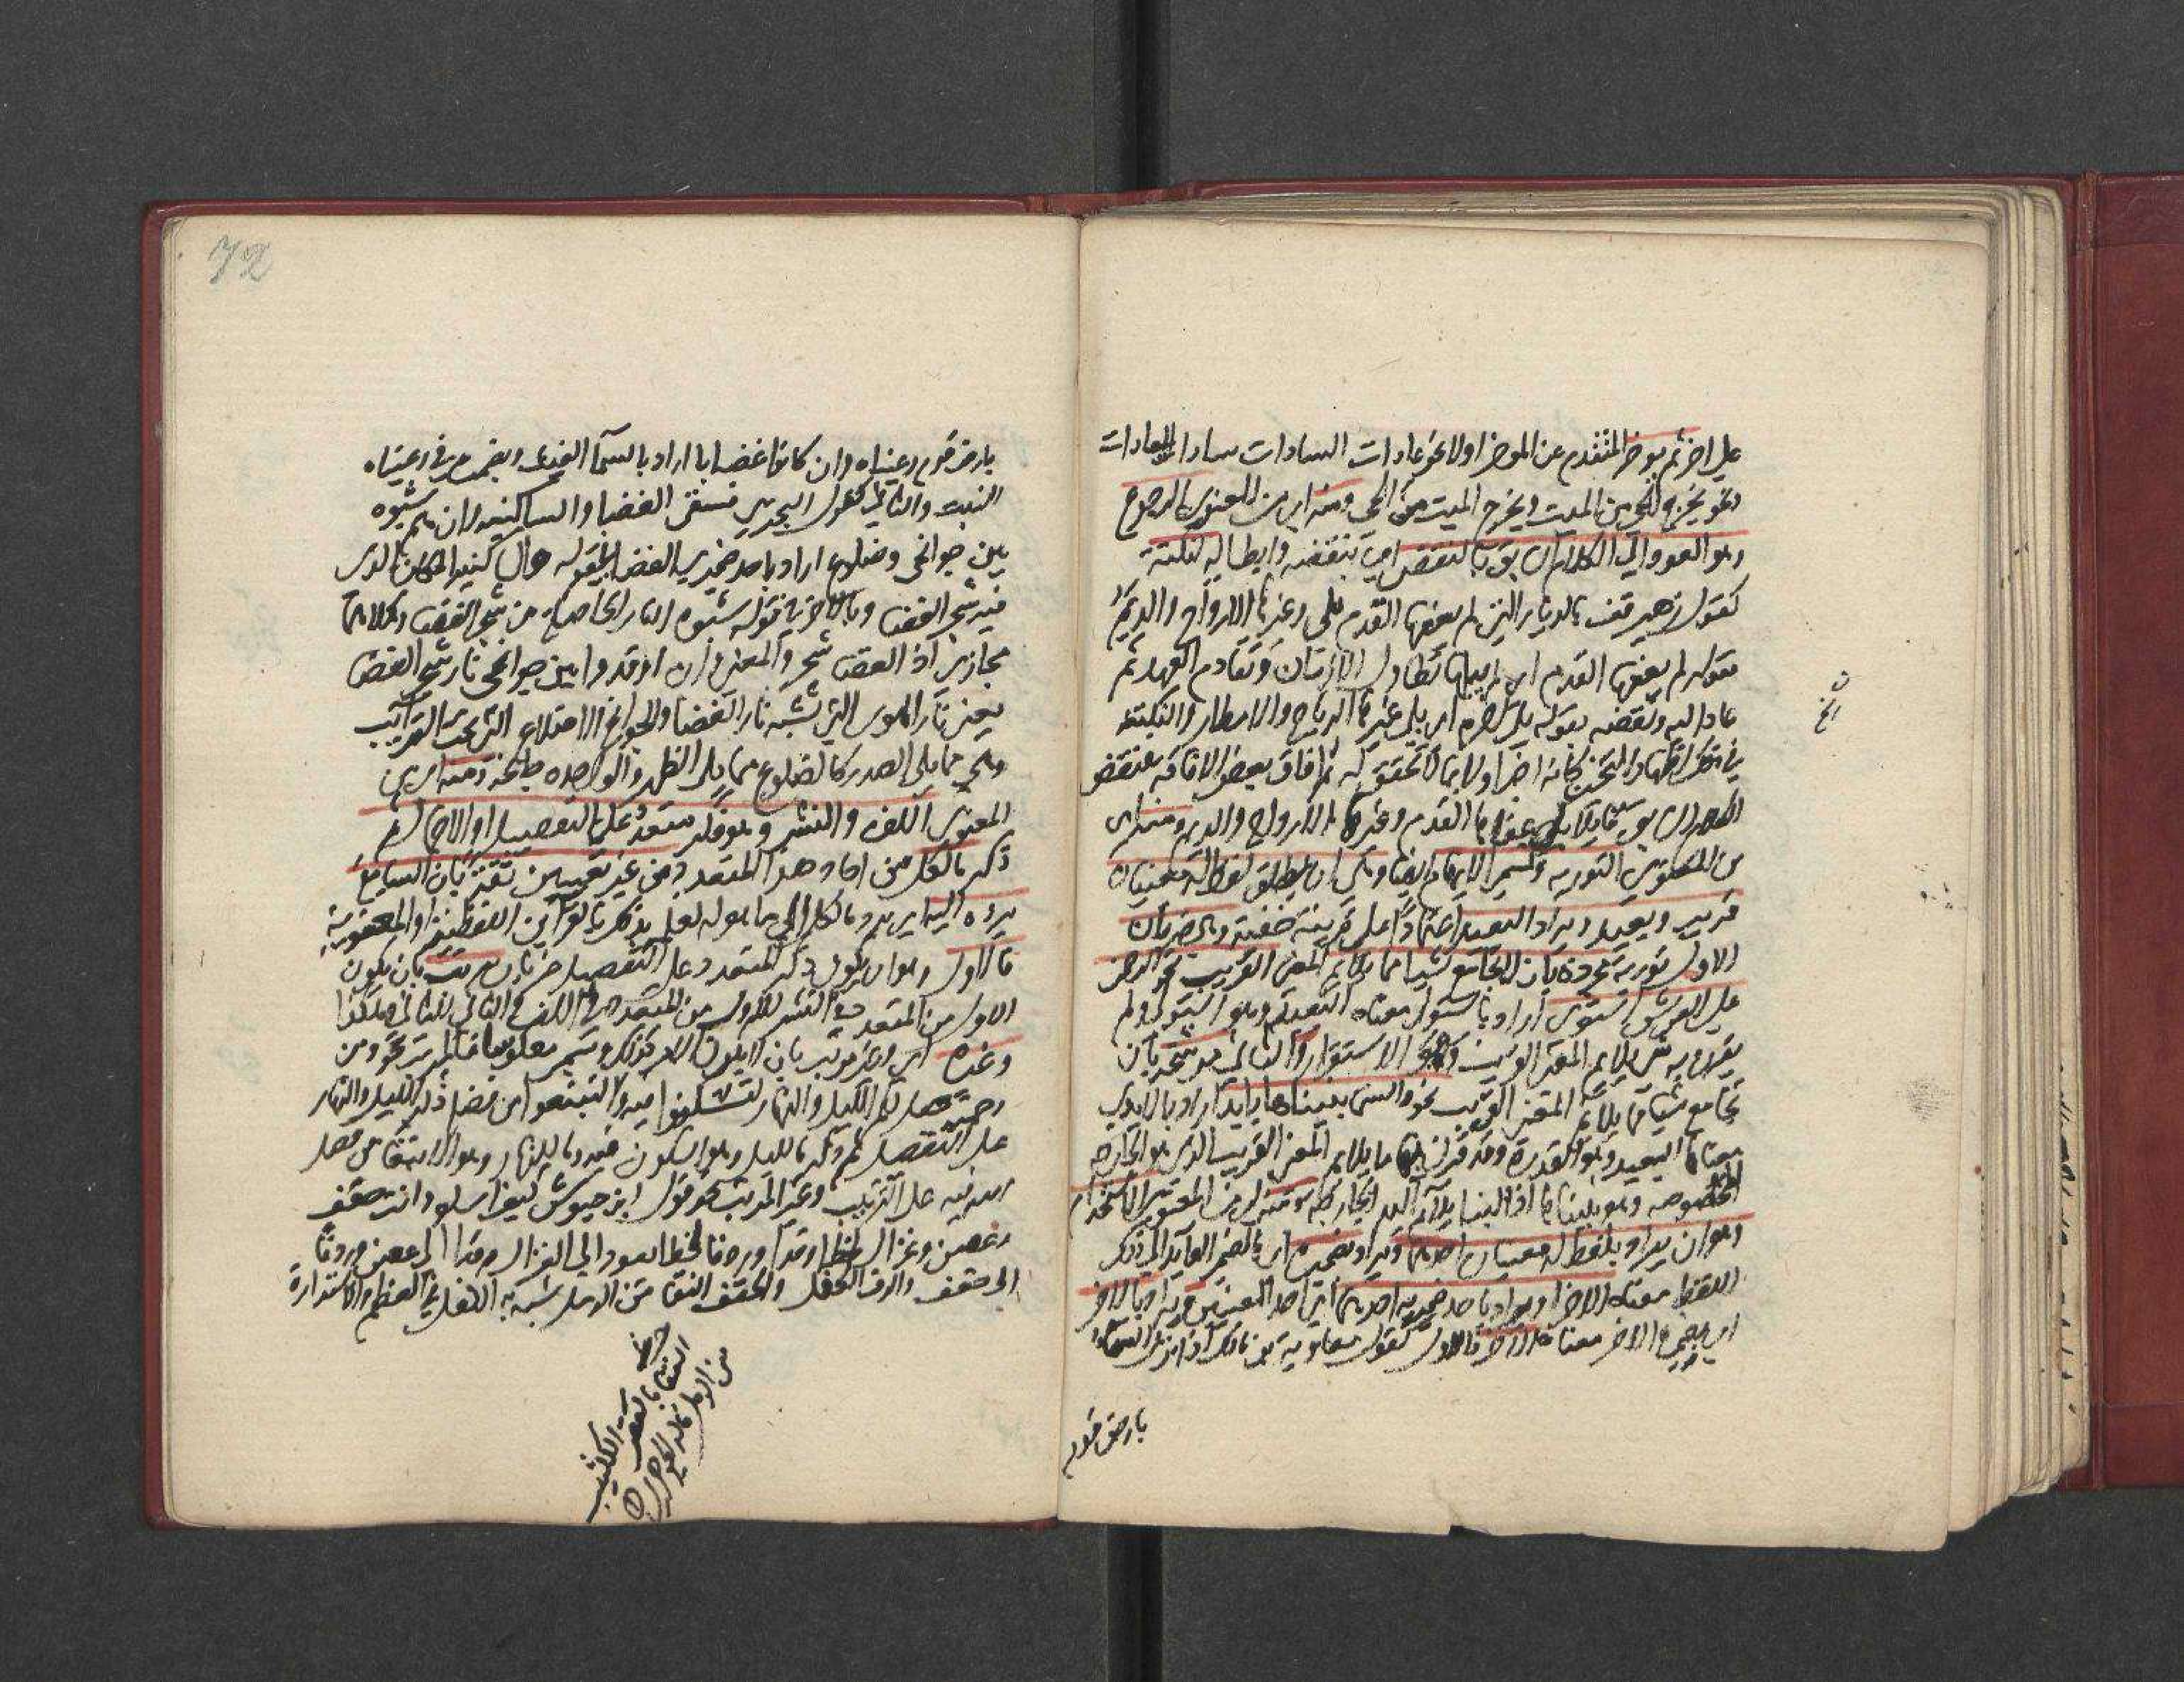 على اخر ثم يوخر المتقدم عن الموخر اولا نحو عادات السادات سادات العادات
ونحو يخرج الحي من الميت ويخرج الميت من الحي ومنه اي من المعنوي الرجوع
وهو العود الى الكلام السابق بالنقض اي بنقضه وابطاله لنكتة
كقول زهير قف بالديار التي لم يعفها القدم بلى وغيرها الارواح والديم
فقوله لم يعفها القدم اي لم يبلها تطاول الازمان وتقادم العهد ثم
عاد اليه ونقضه بقوله بلى اي بلى غيرها الرياح والامطار والنكتة
في ذلك اظهار التحير كانه اخبر اولا بما لا تحقق له ثم افاق بعض الافاقة فنقض
الكلام السابق قائلا بلى عفاها القدم وغيرها الارواح والديم ومنه اي
من المعنوي التورية وتسمى الايهام ايضا وهي ان يطلق لفظ له معنيان
قريب وبعيد ويراد البعيد اعتمادا على قرينة خفية وهي ضربان
الاول تورية مجردة بان لا تجامع شيئا مما يلايم المعنى القريب نحو الرحمن
على العرش استوى اراد باستوى معناه البعيد وهو استولى ولم
يقرن به شي يلايم المعنى القريب وهو الاستقرار والثاني مرشحة بان
تجامع شيئا مما يلايم المعنى القريب نحو والسماء بنيناها بايد اراد بالايدي
معناها البعيد وهو القدرة وقد قرن بها ما يلايم المعنى القريب الذي هو الجارحة
المخصوصه وهو بنيناها اذ البنا يلايم اليد الجارحة ومنه اي من المعنوي الاستخدام
وهو ان يراد بلفظ له معنيان احدهما ويراد بضميره اي بالضمير العايد الى ذلك
اللفظ معناه الاخر او يراد باحد ضميريه احدهما اي احد المعنيين ويراد بالاخر
اي بضميره الاخر معناه الاخر فالاول كقول معاوية بن مالك اذا نزل السماء
بارض قوم
72
بارض قوم رعيناه وان كانوا غضابا اراد بالسما الغيث وبضميره في رعيناه
النبت والثاني كقول البحتري فسقى الغضا والساكنيه وان هم شبوه
بين جوانحي وضلوعي اراد باحد ضميري الغضا بقوله والساكنيه المكان الذي
فيه شجر الغضا وبالاخر في قوله شبوه النار الحاصلة من شجر الغضا وكلاهما
مجازي اذ الغضا شجر والمعنى وان اوقدوا بين جوانحي نار شجر الغضا
يعني نار الهوى التي تشبه نار الغضا والجوانح الاضلاع التي تحت الترائب
وهي مما يلي الصدر كالضلوع مما يلي الظهر والواحده جانحة ومنه اي من
المعنوي اللف والنشر وهو ذكر متعدد على التفصيل او الاجمال ثم
ذكر ما لكل من احاد هذا المتعدد من غير تعيين ثقة بان السامع
يرده اليه اي يرد ما لكل الى ما هو له لعلمه بذلك بالقراين اللفظية او المعنوية
فالاول وهو ان يكون ذكر المتعدد على التفصيل ضربان مرتب بان يكون
الاول من المتعدد في النشر للاول من المتعدد في اللف والثاني للثاني وهكذا
وغيره اي وغير مرتب بان لا يكون الامر كذلك ويسمى معكوسا فالمرتب نحو ومن
رحمته جعل لكم الليل والنهار لتسكنوا فيه ولتبتغوا من فضله ذكر الليل والنهار
على التفصيل ثم ذكر ما لليل وهو السكون فيه وما للنهار وهو الابتغا من فضل
الله فيه على الترتيب وغير المرتب نحو قول ابن حيوش كيف اسلو وانت حقف
وغصن وغزال لحظا وقدا وردفا لحظا يعود الى الغزال وقدا الى غصن وردفا
الى حقف والردف الكفل والحقف النقا من الرمل شبه به الكفل في العظم والاستدارة